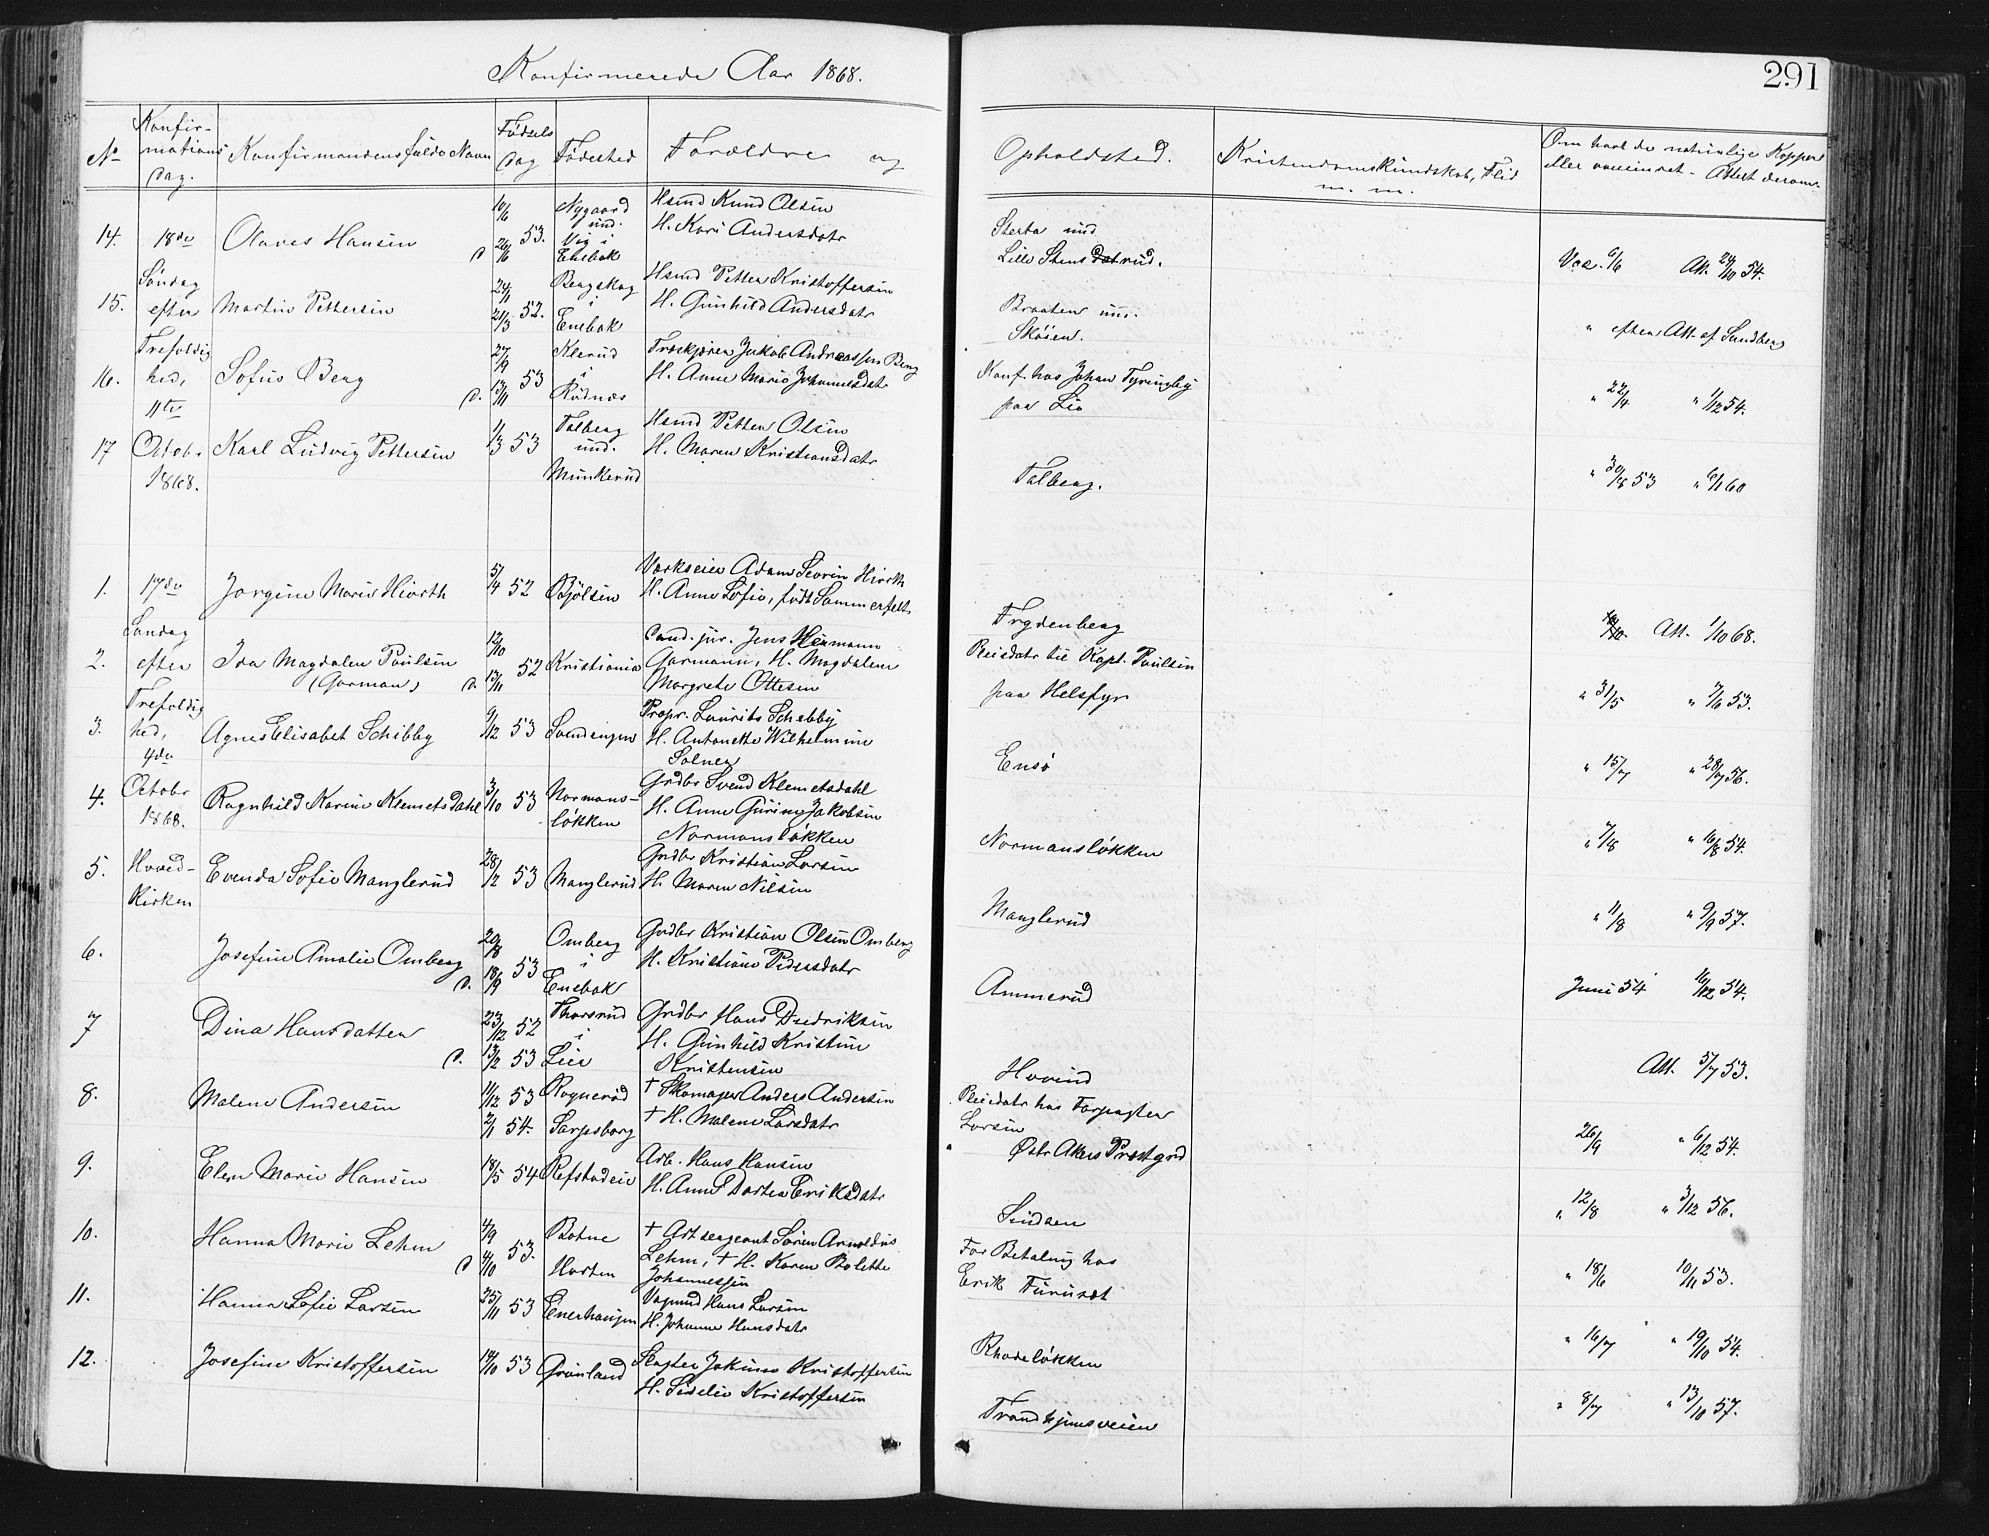 Konfirmerede Aar 1868.
291
No
Konfir-
mations
Dag.
Konfirmandens fulde Navn
Fødsels
Dag
Fødested
Forældre og
Opholdsted.
Kristendomskundskab, Flid
m. m.
Om havt de naturlige Kopper
eller vaccineret - Attest derom.
14. 18de Olaves Hansen
10/6 D 26/6 53.
Nygaard
und.
Vig i
Enebak
Hsmd Knud Olsen
H. Kari Andersdatr
und
Lille Stensrud.
Vac. 6/6 Att. 24/10 54.
Søndag
15. efter Martin Pettersen
24/1 21/3 52.
Bergskog
i
Enebak
Hsmd Petter Kristoffersen
H. Gunhild Andersdatr
Braaten und.
Skøien.
" efter Att. af Sundberg
Trefoldig
16. hed, Sofus Berg
27/9 D. 13/11 53
Klerud
i
Rødnæs
Jakob Andreassen Berg
H. Anne Marie Johannesdatr
Konf. hos Johan
paa Lio
" 22/4 " 1/12 54.
11te
17 Octobr Karl Ludvig Pettersen
1/3 53
Talberg
und.
Munkerud
Hsmd Petter Olsen
H. Maren Kristiansdatr
Talberg.
" 30/8 53 " 6/1 60
1868.
1. 17de Jorgine Marie Hiorth
5/4 52 Bjølsen
Værkseier Adam Severin Hiorth
H. Anne Sofie, født Sommerfelt
Frydenberg
Att. 1/10 68.
Søndag
2. efter Ida Magdalen Poulsen
(Garman)
12/10 D. 13/11 52 Kristiania
Cand. jur. Jens Herman
Garmann, H. Magdalene
Margrete Ottesen
Pleiedatr til Kapt. Poulsen
paa Helsfyr
" 31/5 " 7/6 53.
Trefoldig
3. hed, Agnes Elisabet Schibby
9/12 53
Propr. Laurits Schebby
H. Antonette Wilhelmine
Solner
Ensø
" 15/7 " 28/7 56.
4de
4. Octobr Ragnhild Karine Klemetsdahl
3/10 53
Normans-
løkken
Grdbr Svend Klemetsdahl
H. Anne Gurine Jakobsen
Normansløkken
Normansløkken
" 7/8 " 16/8 54.
1868.
5. Hoved- Evenda Sofie Manglerud
28/2 53 Manglerud
Grdbr Kristian Larsen
H. Maren Nilsen
Manglerud
" 11/8 " 9/9 57.
Kirken
6. Josefine Amalie Omberg
20/8 D. 18/9 53
Omberg
i
Enebak
Grdbr Kristian Olsen Omberg
H. Kristiane Pedersdatr
Ammerud
Juni 54 16/12 54.
7 Dina Hansdatter
23/12 52
D. 13/2 53
Thorsrud
i
Lier
Grdbr Hans Fredriksen
H. Gunhild Kristine
Kristensen
Hovind
Att. 5/7 53.
8. Malene Andersen
11/12 53
2/1 54.
Rognerød
Sarpsborg
† Skomager Anders Andersen
† H. Malene Larsdatr
Pleiedatr hos Forpagter
Larsen
Østr Akers Prestgrd
26/9 " 6/12 54.
9. Elen Marie Hansen
18/5 54 Refstadeie
Arb. Hans Hansen
H. Anne Dortea Eriksdatr
Sinsen
" 12/8 " 3/12 56.
10. Hanna Marie Lehm
4/9 D 4/10 53.
Botne
Horten
† Art sergeant Søren Arnoldus
Lehm, † H. Karen Bolette
Johannessen
For Betaling hos
Erik Furuset
" 18/6 10/11 53.
11. Hanna Sofie Larsen
25/11 53 Enerhaugen
Vognmd Hans Larsen
H. Johanne Hansdatr
Rhodeløkken
" 16/7 " 19/10 54.
12. Josefine Kristoffersen
14/10 53 Grønland
Slagter Jokum Kristoffersen
H. Sedelie Kristoffersen
Trondhjemsveien
" 8/7 " 13/10 57.